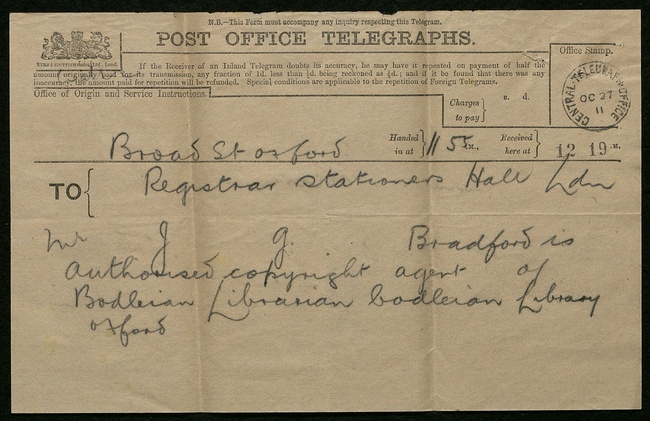 N.B.—This Form must accompany any inquiry respecting this Telegram.
POST OFFICE TELEGRAPHS.
If the Receiver of an Inland Telegram doubts its accuracy, he may have it repeated on payment of half the
amount originally paid for its transmission, any fraction of 1d. less than ½d. being reckoned as ½d.; and if it be found that there was any
inaccuracy, the amount paid for repetition will be refunded. Special conditions are applicable to the repetition of Foreign Telegrams.
Office Stamp.
CENTRAL TELEGRAPH OFFICE
OC 27
11
Office of Origin and Service Instructions.
Charges to pay
s. d.
Broad St oxford
Handed in at 11 55 M.,
Received here at 12 19 M.
TO
Registrar Stationers Hall Ldn
Mr J G. Bradford is
authorised copyright agent of
Bodleian Librarian bodleian Library
oxford